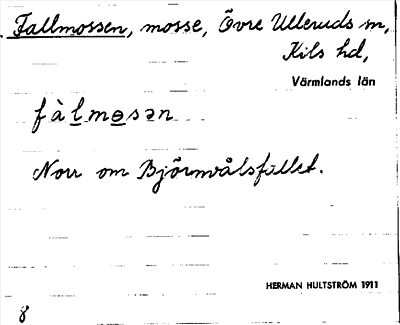 Fallmossen, mosse, Övre Ulleruds sn,
Kils hd,
Värmlands län
fàlmosən
Norr om Björnvålsfallet.
HERMAN HULTSTRÖM 1911
8